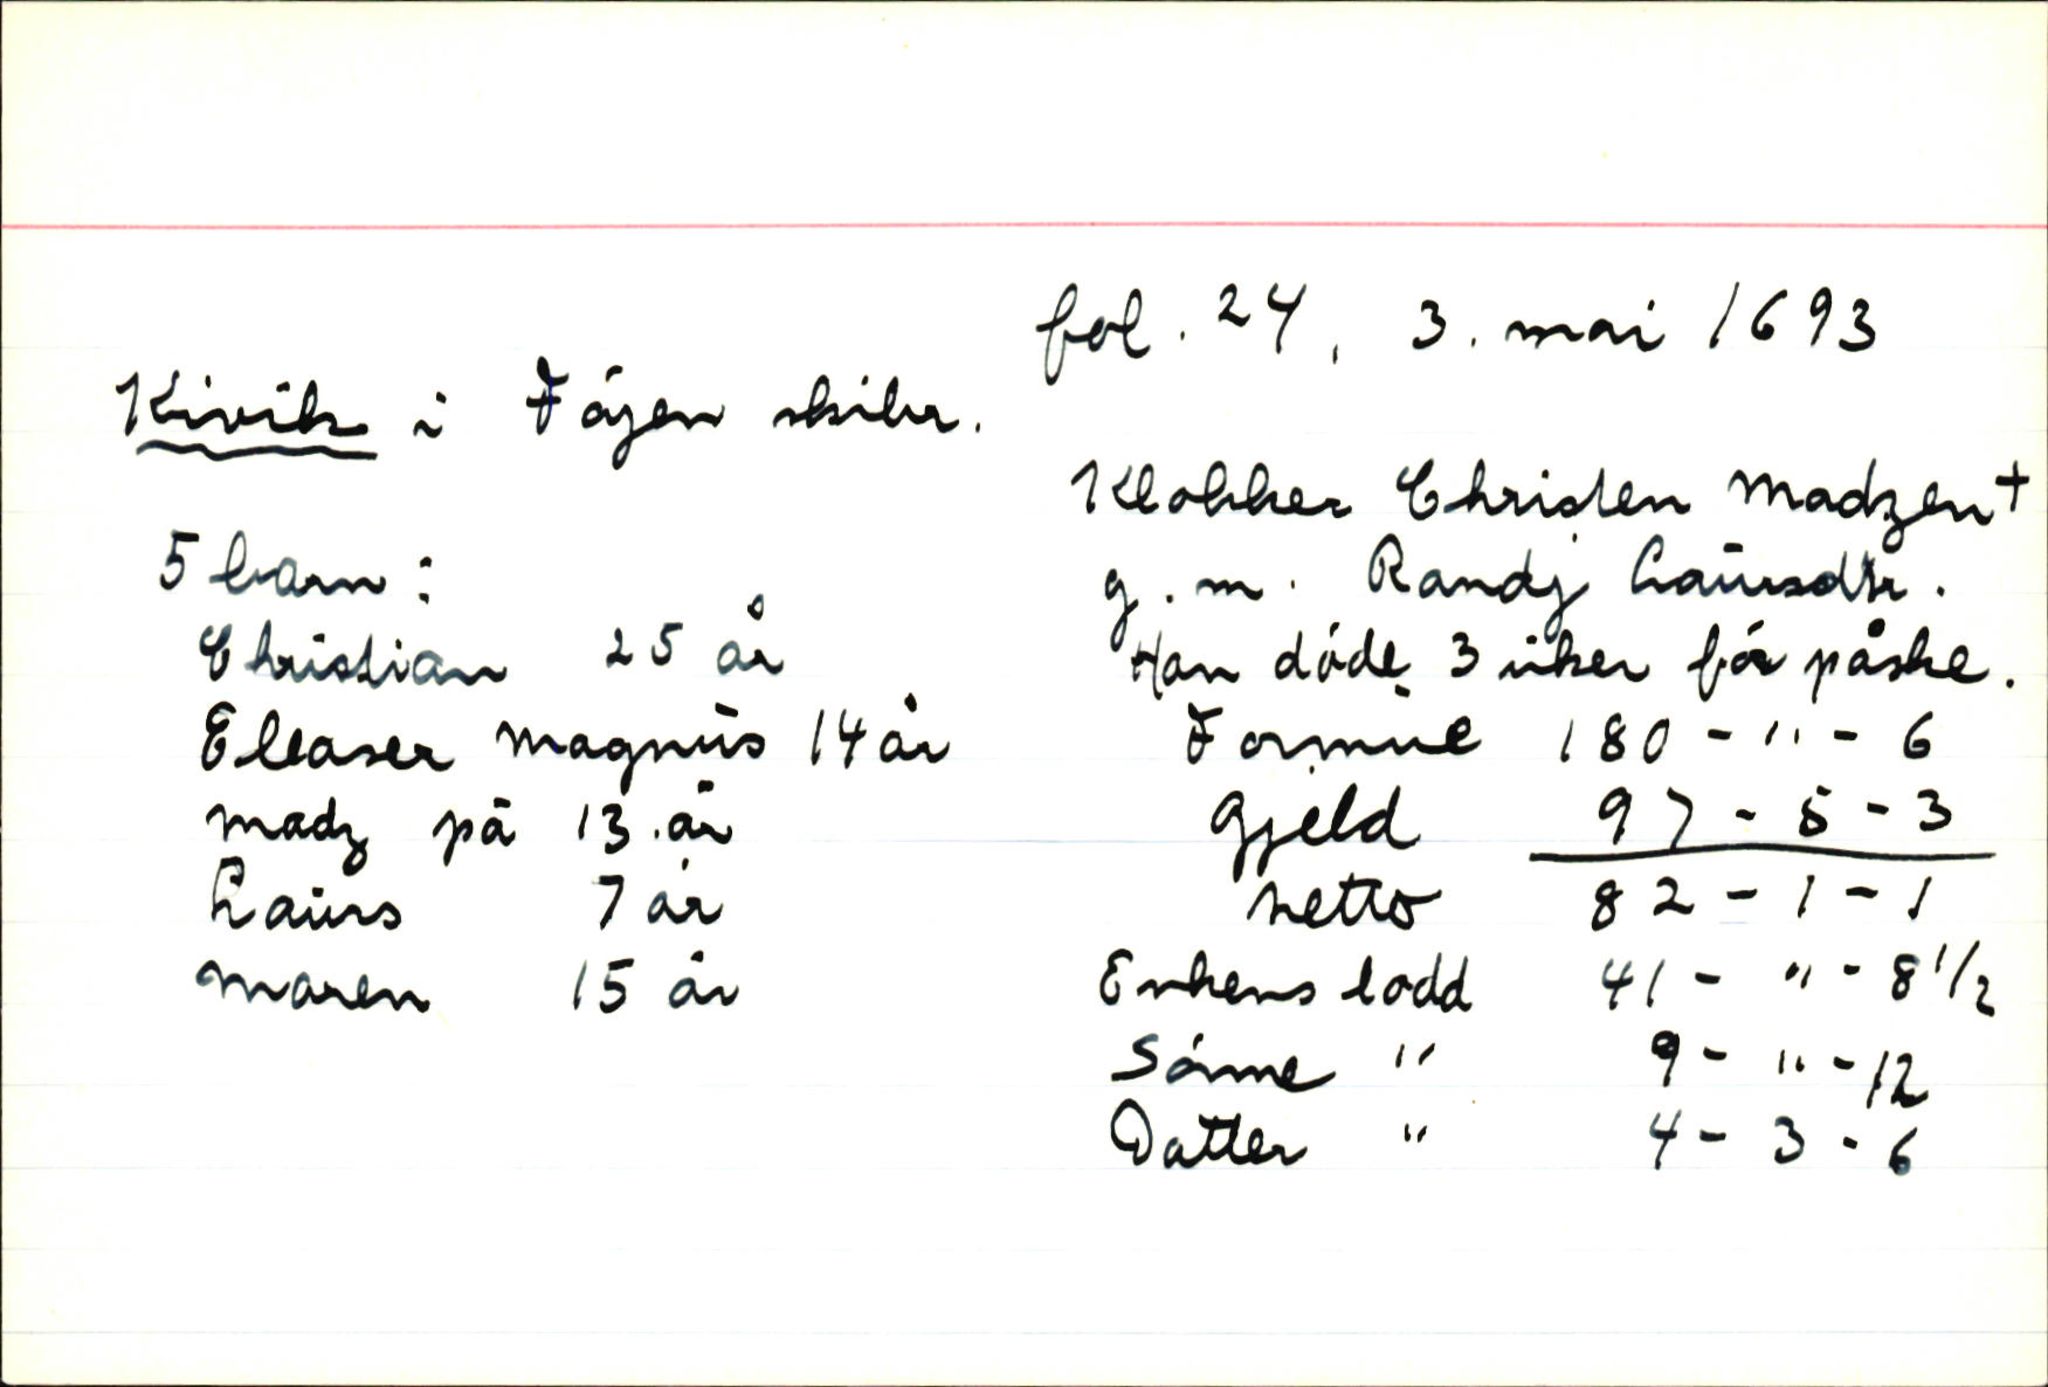 fol. 24, 3. mai 1693
Kivik i Föyen skibr.
Klokker Christen Madzen +
g. m. Randj Laursdtr.
Han döde 3 uker för påske.
5 barn:
Christian 25 år
Eleaser Magnus 14 år
Madz på 13. år
Laurs 7 år
Maren 15 år
Formue 180 - " - 6
Gjeld 97 - 5 - 3
Netto 82 - 1 - 1
Enkens lodd 41 - " - 8 1/2
Sönne " 9 - " - 12
Datter " 4 - 3 - 6